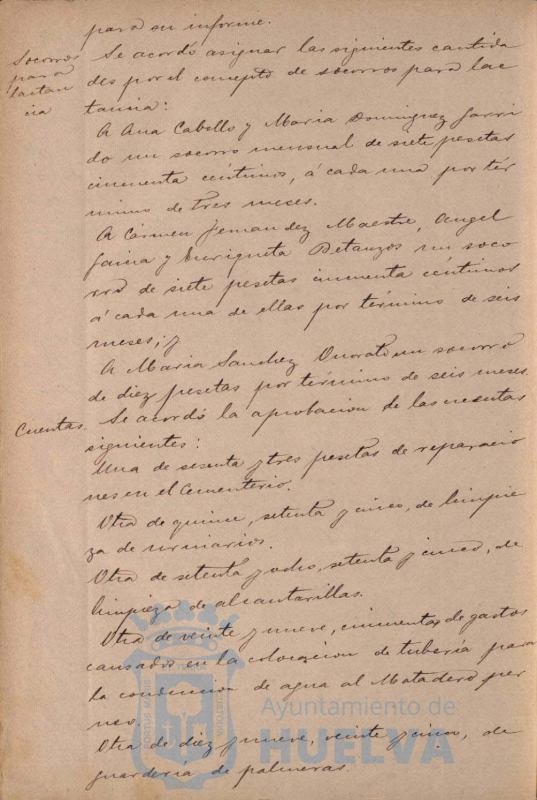 para su informe.
Socorros
para
lactan
cia
Se acordó asignar las siguientes cantida
des por el concepto de socorros para lac
tancia:
A Ana Cabello y Maria Dominguez Garri
do un socorro mensual de siete pesetas
cincuenta céntimos, á cada una por tér
mino de tres meses.
A Cármen Fernandez Maestre, Angel
Gaina y Enriqueta Betanzos un soco
rro de siete pesetas cincuenta céntimos
á cada una de ellas por término de seis
meses; y
A Maria Sanchez Onorato un socorro
de diez pesetas por término de seis meses.
Cuentas.
Se acordó la aprobacion de las cuentas
siguientes:
Una de sesenta y tres pesetas de reparacio
nes en el Cementerio.
Otra de quince, setenta y cinco, de limpie
za de urinarios.
Otra de setenta y ocho, setenta y cinco, de
limpieza de alcantarillas.
Otra de veinte y nueve, cincuenta, de gastos
causados en la colocacion de tubería para
la conduccion de agua al Matadero per
neo.
Otra de diez y nueve, veinte y cinco, de
guardería de palmeras.
Ayuntamiento de
HUELVA